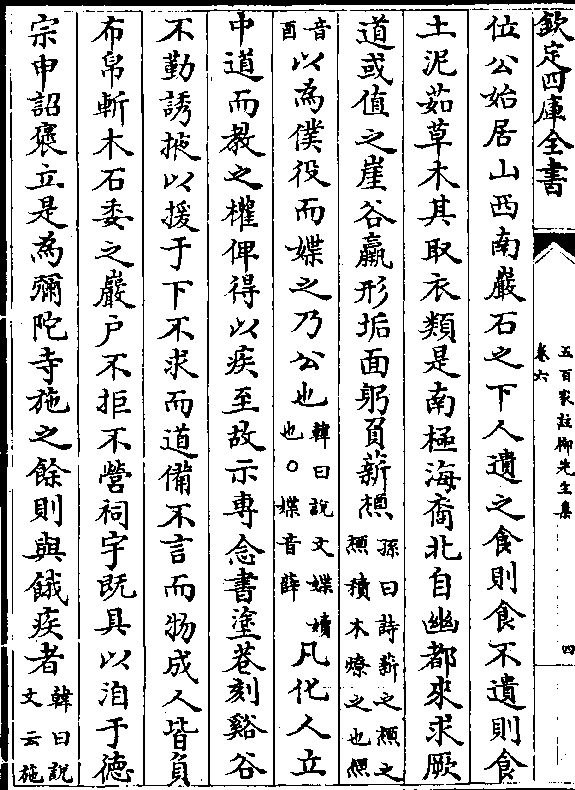 欽定四庫全書
五百家註柳先生集
卷六
四
位公始居山西南巖石之下人遺之食則食不遺則食
土泥茹草木其取衣類是南極海裔北自幽都來求厥
道或值之崖谷羸形垢面躬負薪槱孫曰詩薪之槱之槱積木燎之也槱
音酉以為僕役而媟之乃公也韓曰說文媟嬻也○媟音薛凡化人立
中道而教之權俾得以疾至故示專念書塗巷刻谿谷
不勤誘掖以援于下不求而道備不言而物成人皆負
布帛斬木石委之巖户不拒不營祠宇既具以洎于德
宗申詔褒立是為彌陀寺施之餘則與餓疾者韓曰說文云施